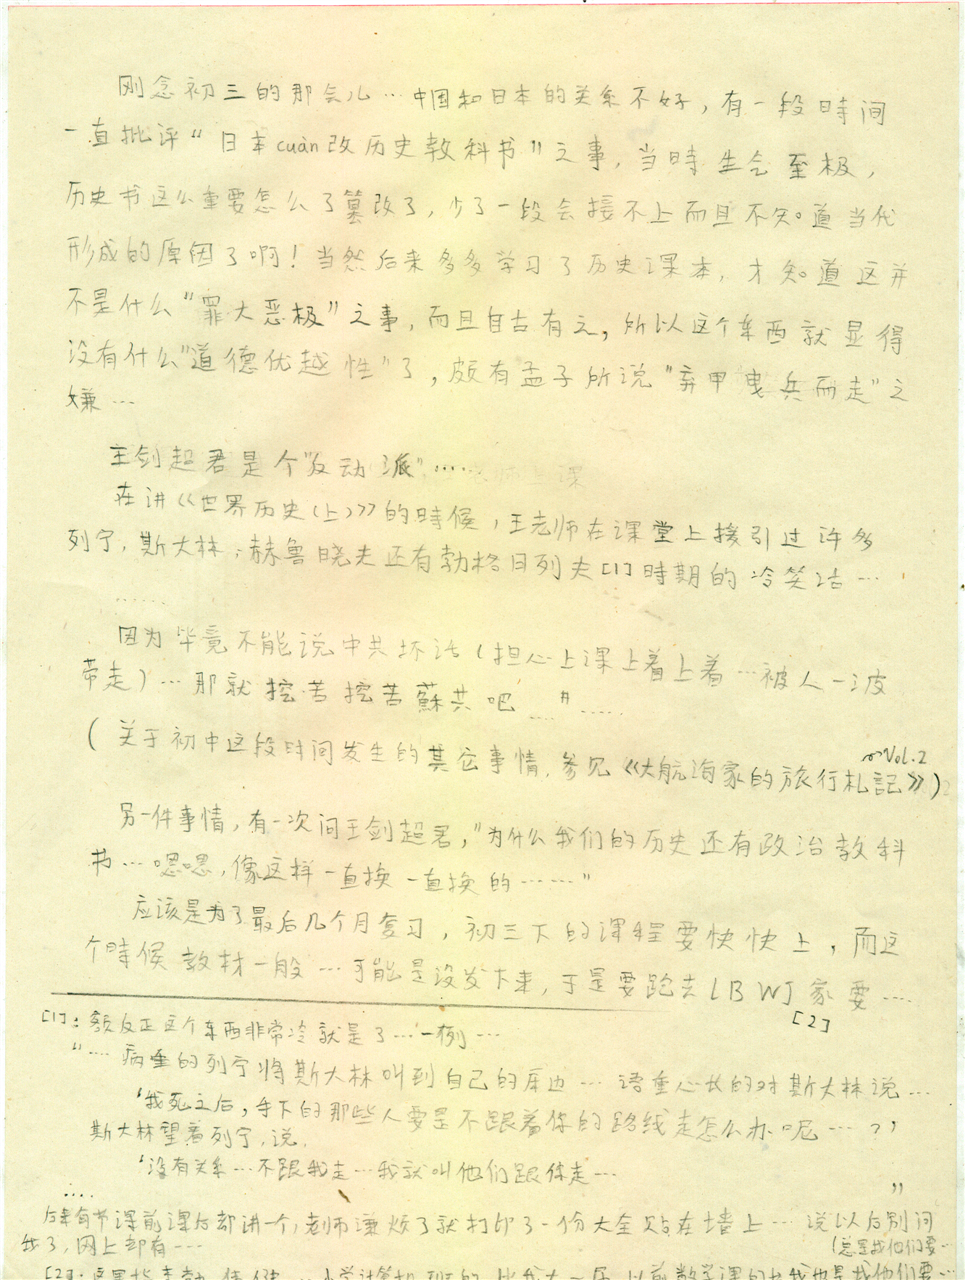 刚念初三的那会儿…中国和日本的关系不好，有一段时间
一直批评“日本cuàn改历史教科书”之事，当時生气至极，
历史书这么重要怎么了篡改了，少了一段会接不上而且不知道当代
形成的原因了啊！当然后来多多学习了历史课本，才知道这并
不是什么“罪大恶极”之事，而且自古有之，所以这个东西就显得
没有什么“道德优越性”了，颇有孟子所说“弃甲曳兵而走”之
嫌…
王剑超君是个“反动派”……
在讲《世界历史(上)》的時候，王老师在课堂上接引过许多
列宁，斯大林，赫鲁晓夫还有勃格日列夫[1]時期的冷笑话…
……
因为毕竟不能说中共坏话(担心上课上着上着…被人一波
带走)…那就挖苦挖苦蘇共吧……”……
(关于初中这段时间发生的其它事情，参见《大航海家的旅行札記》Vol.2)
另一件事情，有一次问王剑超君，“为什么我们的历史还有政治教科
书…嗯嗯，像这样一直换一直换的……”
应该是为了最后几个月复习，初三下的课程要快快上，而这
个時候教材一般…可能是没发下来，于是要跑去LBWJ家要…
[2]
[1]：额反正这个东西非常冷就是了…一例…
“…病重的列宁将斯大林叫到自己的床边…语重心长的对斯大林说…
‘我死之后，手下的那些人要是不跟着你的路线走怎么办呢…？’
斯大林望着列宁，说，
‘没有关系…不跟我走…我就叫他们跟你走…
…. ”
后来有节课前课后都讲一个，老师嫌烦了就打印了一份大全贴在墙上…说以后别问
我了，网上都有…
(总是我他们要…
[2]：